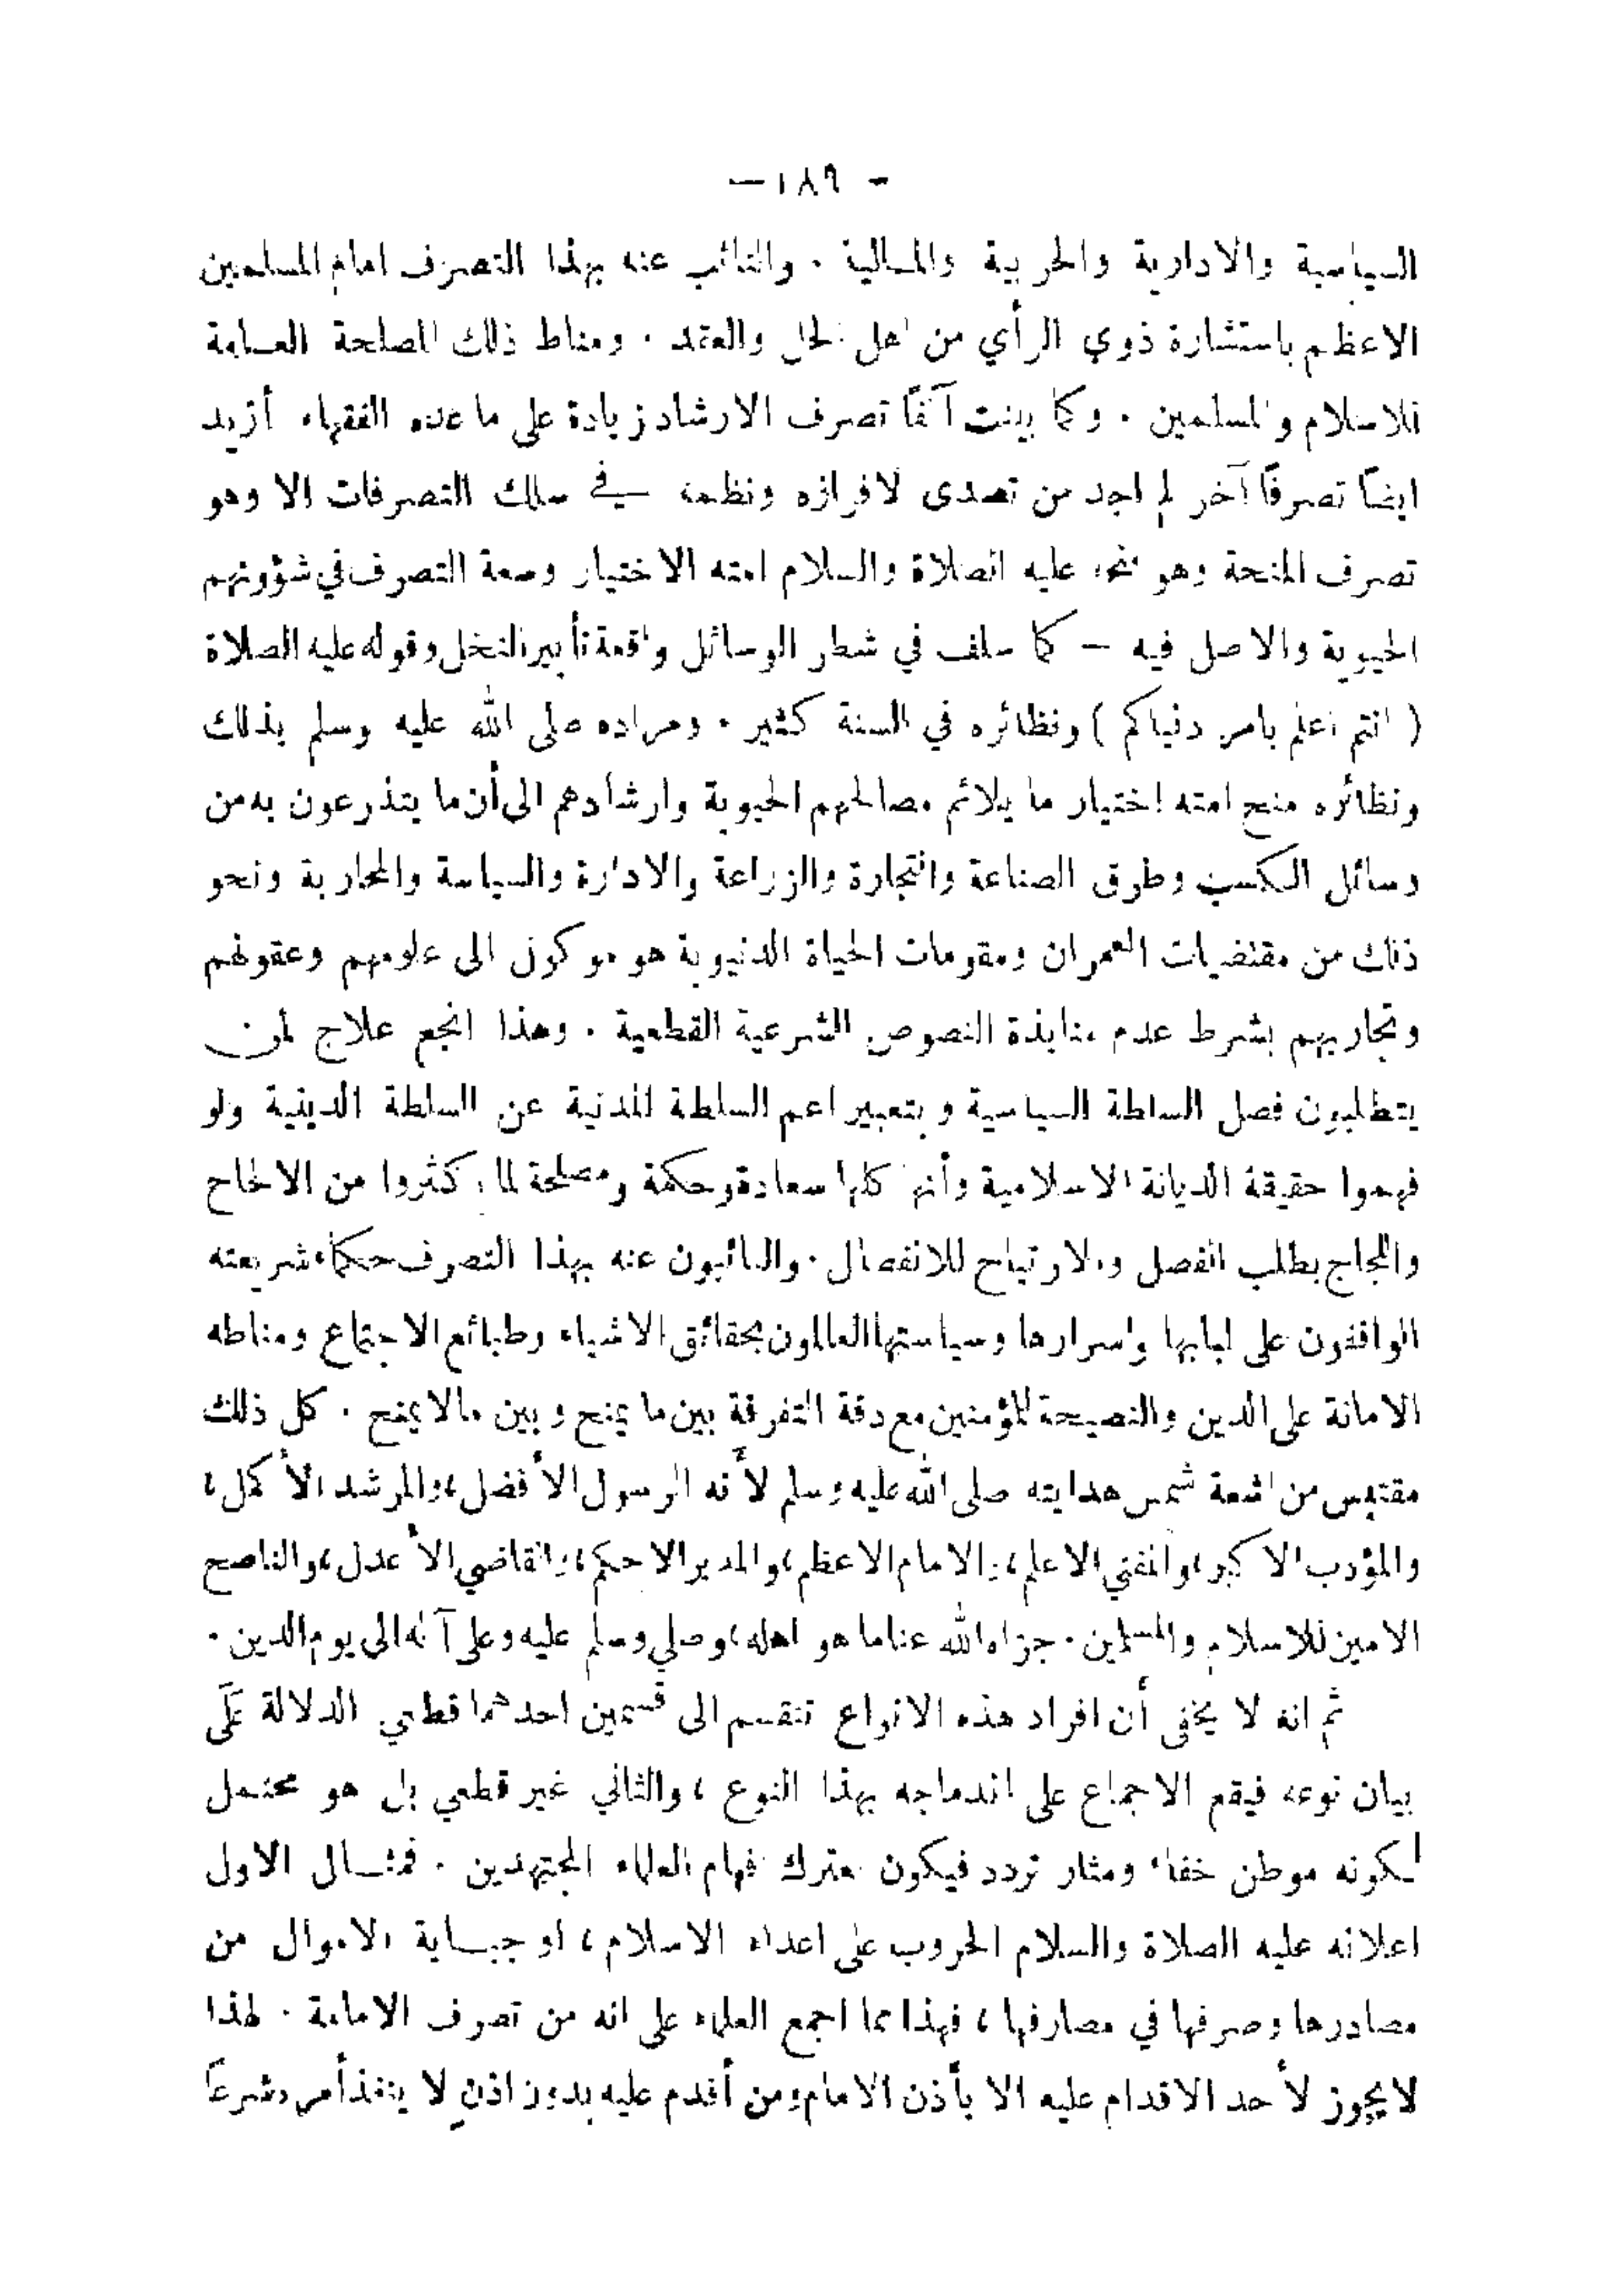 - ١٨٩ -
السياسية والادارية والحربية والمالية . والنائب عنه بهذا التصرف امام المسلمين
الاعظم باستشارة ذوي الرأي من اهل الحل والعقد . ومناط ذلك المصلحة العامة
للاسلام والمسلمين . وكما بينت آنفًا تصرف الارشاد زيادة على ما عده الفقهاء أزيد
ايضًا تصرفًا آخر لم اجد من تصدى لافرازه ونظمه في سلك التصرفات الا وهو
تصرف المنحة وهو منحه عليه الصلاة والسلام امته الاختيار وسعة التصرف في شؤونهم
الحيوية والاصل فيه – كما سلف في شطر الوسائل واقعة تأبير النخل وقوله عليه الصلاة
( انتم اعلم بامر دنياكم ) ونظائره في السنة كثير . ومراده صلى الله عليه وسلم بذلك
ونظائره منح امته اختيار ما يلائم مصالحهم الحيوية وارشادهم الى أن ما يتذرعون به من
وسائل الكسب وطرق الصناعة والتجارة والزراعة والادارة والسياسة والمحاربة ونحو
ذلك من مقتضيات العمران ومقومات الحياة الدنيوية هو موكول الى علومهم وعقولهم
وتجاربهم بشرط عدم منابذة النصوص الشرعية القطعية . وهذا انجع علاج لمن
يتطلبون فصل السلطة السياسية وبتعبير اعم السلطة المدنية عن السلطة الدينية ولو
فهموا حقيقة الديانة الاسلامية وأنها كلها سعادة وحكمة ومصلحة لما اكثروا من الالحاح
واللجاج بطلب الفصل والارتياح للانفصال . والنائبون عنه بهذا التصرف حكماء شريعته
الواقفون على لبابها واسرارها وسياستها العالمون بحقائق الاشياء وطبائع الاجتماع ومناطه
الامانة على الدين والنصيحة للمؤمنين مع دقة التفرقة بين ما يمنح وبين مالا يمنح . كل ذلك
مقتبس من اشعة شمس هدايته صلى الله عليه وسلم لأنه الرسول الأفضل، والمرشد الأكمل،
والمؤدب الاكبر، والمفتي الاعلم، والامام الاعظم، والمدير الاحكم، والقاضي الأعدل، والناصح
الامين للاسلام والمسلمين . جزاه الله عنا ما هو اهله، وصلي وسلم عليه وعلى آله الى يوم الدين .
ثم انه لا يخفى أن افراد هذه الانواع تنقسم الى قسمين احدهما قطعي الدلالة عَلَى
بيان نوعه فيقع الاجماع على اندماجه بهذا النوع ، والثاني غير قطعي بل هو محتمل
لكونه موطن خفاء ومثار تردد فيكون معترك افهام العلماء المجتهدين . فمثال الاول
اعلانه عليه الصلاة والسلام الحروب على اعداء الاسلام ، او جباية الاموال من
مصادرها وصرفها في مصارفها ، فهذا مما اجمع العلماء على انه من تصرف الامامة . لهذا
لا يجوز لأحد الاقدام عليه الا بأذن الامام ومن أقدم عليه بدون اذن لا ينفذ أمره شرعًا